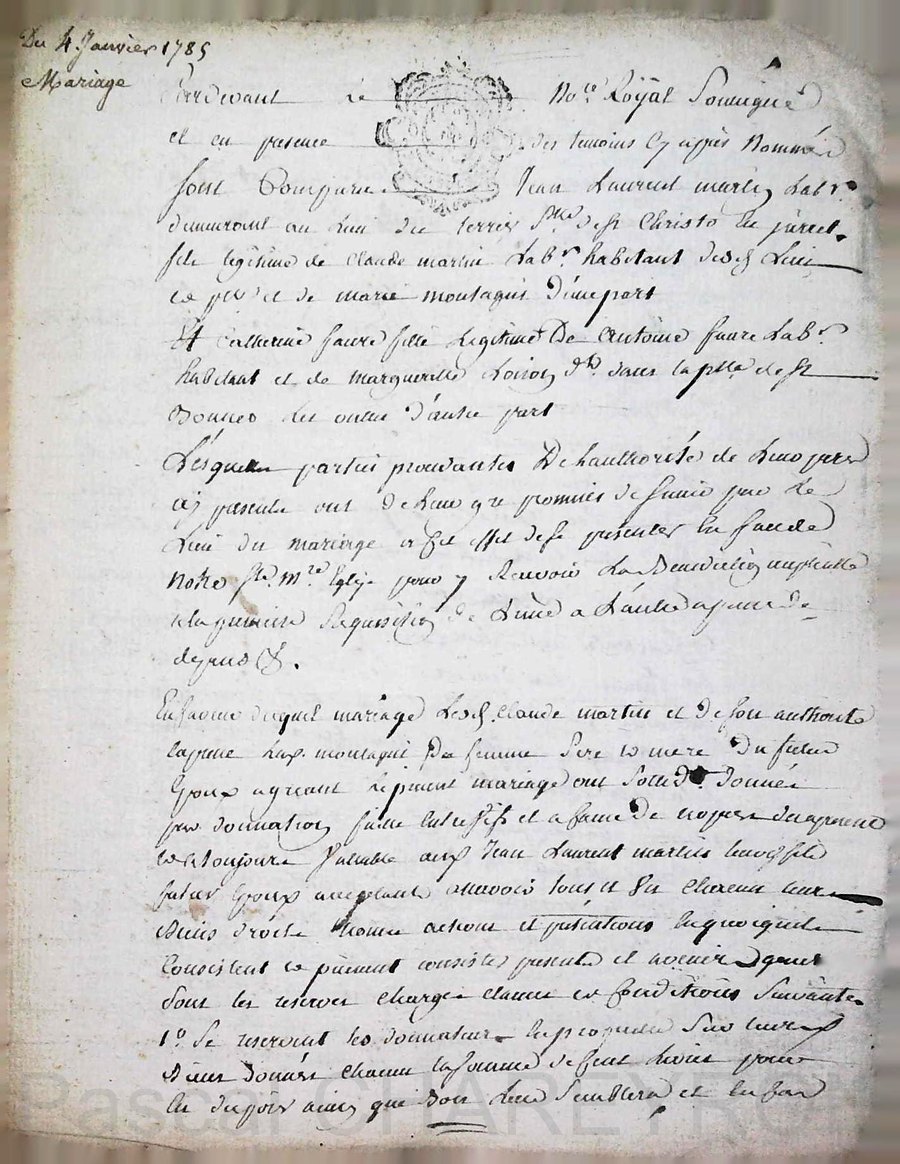 Du 4. Janvier 1785
Mariage
Pardevant le No.re Royal Soussigné
et en presence des temoins Cy après Nommés
sont Comparu Jean Laurent martin Lab.r
demeurant au Lieu de terres p.sse de st Christo en jarret
fils legitime de Claude martin Lab.r habitant dud. Lieu
et de marie montagni d'une part
Et Catherine faure fille Legitime De Antoine faure Lab.r
habitant et de marguerite dans la p.sse de st
Bonnet Les oulles d'autre part
Lesquelles parties procedantes De l'authorité de Leurs peres
cy presents ont de Leur gré promis de s'unir par Le
Lien du mariage et a cet effet de se presenter En face de
notre ste. m.re Eglise pour y Recevoir La Benediction nuptialle
a la premiere Requisition de L'une a L'autre a peine de
depens &.
En faveur duquel mariage Led. Claude martin et de son authorité
lad. montagni sa femme pere et mere du futur
Epoux agreant le present mariage ont donné
par donnation faite entre vifs et a
et toujours Vallable aud. Jean Laurent martin leur fils
futur Epoux acceptant a scavoir tous et un chacun leurs
Biens droits noms actions et pretentions en quoi que
Consistent et puissent consister presents et avenir
sous les reserves charges clauses et Conditions Suivantes
1.o Se reservent les donnateurs Sur leurs
Biens donnés chacun la somme de cent livres pour
en disposer ainsi que bon Leur Semblera et en
Pascal CHAREYRON